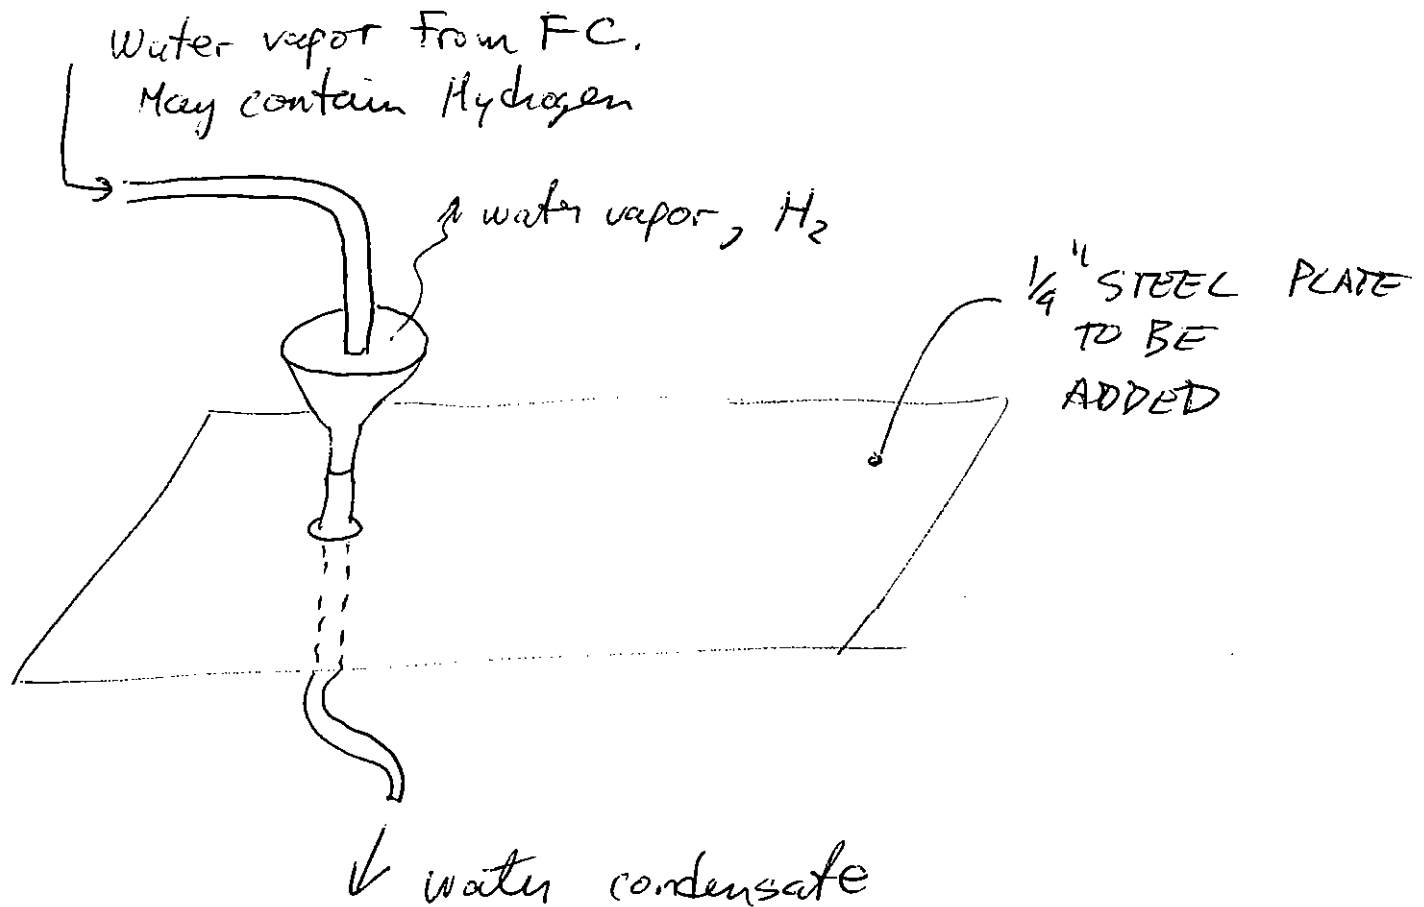 Water vapor from FC.
May contain Hydrogen
water vapor, H₂
1/4" STEEL PLATE
TO BE
ADDED
water condensate